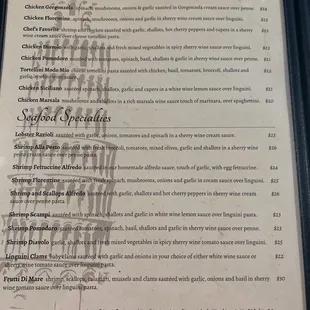 Chicken Gorgonzola spinach, mushrooms, onions & garlic sautéed in Gorgonzola cream sauce over penne. $21
Chicken Florentine spinach, mushrooms, onions and garlic in sherry wine cream sauce over linguini. $21
Chef's Favorite shrimp and chicken sautéed with garlic, shallots, hot cherry peppers and capers in a sherry
wine cream sauce over tortellini pasta.
Chicken Diavolo with garlic, shallots and fresh mixed vegetables in spicy sherry wine sauce over linguini. $21
Chicken Pomodoro sautéed with tomatoes, spinach, basil, shallots and garlic in sherry wine sauce over penne. $21
Tortellini Modo Mio cheese tortellini pasta sautéed with chicken, basil, tomatoes, broccoli, shallots and
garlic wine
Chicken Siciliano sautéed with spinach, shallots, garlic and capers in a white wine lemon sauce over linguini. $21
Chicken Marsala mushrooms and shallots in a rich marsala wine sauce touch of marinara, over spaghettini. $20
Seafood Specialties
Lobster Ravioli sautéed with garlic, onions, tomatoes and spinach in a sherry wine cream sauce. $23
Shrimp Alla Pesto sautéed with fresh broccoli, tomatoes, mixed olives, garlic and shallots in a sherry wine $26
pesto cream sauce over penne pasta.
Shrimp Fettuccine Alfredo our homemade alfredo sauce, touch of garlic, with egg fettuccine. $24
Shrimp Florentine sautéed with fresh spinach, mushrooms, onions and garlic in cream sauce over linguini. $25
Shrimp and Scallops Alfredo sautéed with garlic, shallots and hot cherry peppers in sherry wine cream $26
sauce over penne pasta.
Shrimp Scampi sautéed with spinach, shallots and garlic in white wine lemon sauce over linguini pasta. $23
Shrimp Pomodoro sautéed tomatoes, spinach, basil, shallots and garlic in sherry wine sauce over penne. $25
Shrimp Diavolo garlic, shallots and fresh mixed vegetables in spicy sherry wine tomato sauce over linguini. $25
Linguini Clams baby clams sautéed with garlic and onions in your choice of either white wine sauce or $22
sherry wine tomato sauce over linguini pasta.
Frutti Di Mare shrimp, scallops, calamari, mussels and clams sautéed with garlic, onions and basil in sherry $30
wine tomato sauce over linguini pasta.